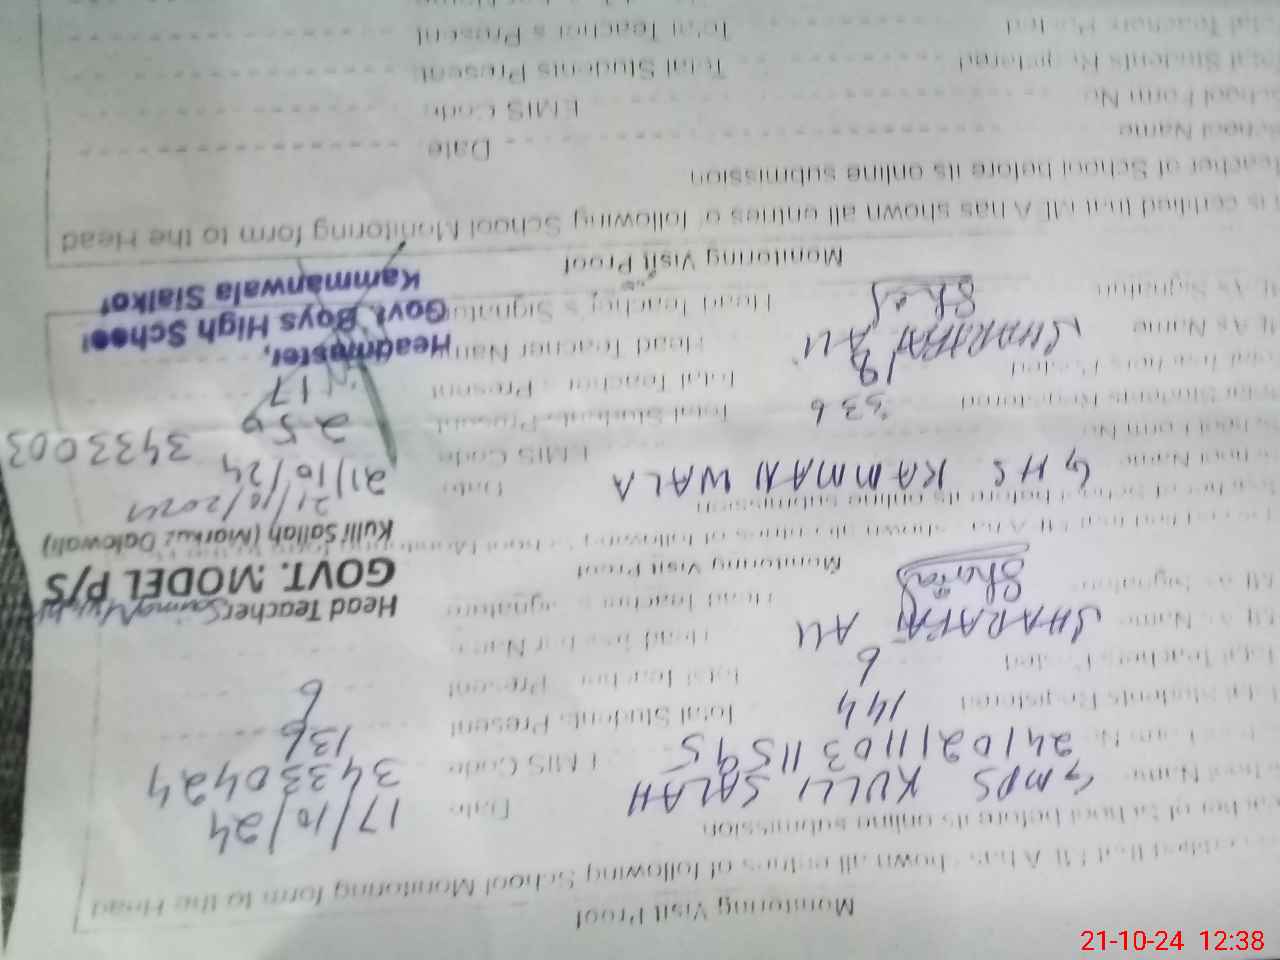 Monitoring Visit Proof
certified that MEA has shown all entries of following School Monitoring form to the Head
Teacher of School before its online submission
School Name GMPS KULLI SALAH Date 17/10/24
Form No 241021110311595 EMIS Code 34330424
Total Students Registered 144 Total Students Present 136
Total Teachers Posted 6 Total Teachers Present 6
MEAs Name SHARAFAT ALI Head Teacher Name
MEAs Signature Head Teacher's Signature
Head Teacher
GOVT. MODEL P/S
Kulli Sallah (Markuz Dalowali)
21/10/2024
Monitoring Visit Proof
certified that MEA has shown all entries of following School Monitoring
Teacher of School before its online submission
School Name GHS KAMMANWALA Date 21/10/24
School Form No EMIS Code 3433003
Total Students Registered 336 Total Students Present 250
Total Teachers Posted 19 Total Teachers Present 17
MEAs Name SHARAFAT ALI Head Teacher Name
MEAs Signature Head Teacher's Signature
Headmaster,
Govt. Boys High School
Kammanwala Sialkot
Monitoring Visit Proof
is certified that MEA has shown all entries of following School Monitoring form to the Head
Teacher of School before its online submission
School Name Date
School Form No EMIS Code
Total Students Registered Total Students Present
Total Teachers Posted Total Teachers Present
21-10-24 12:38